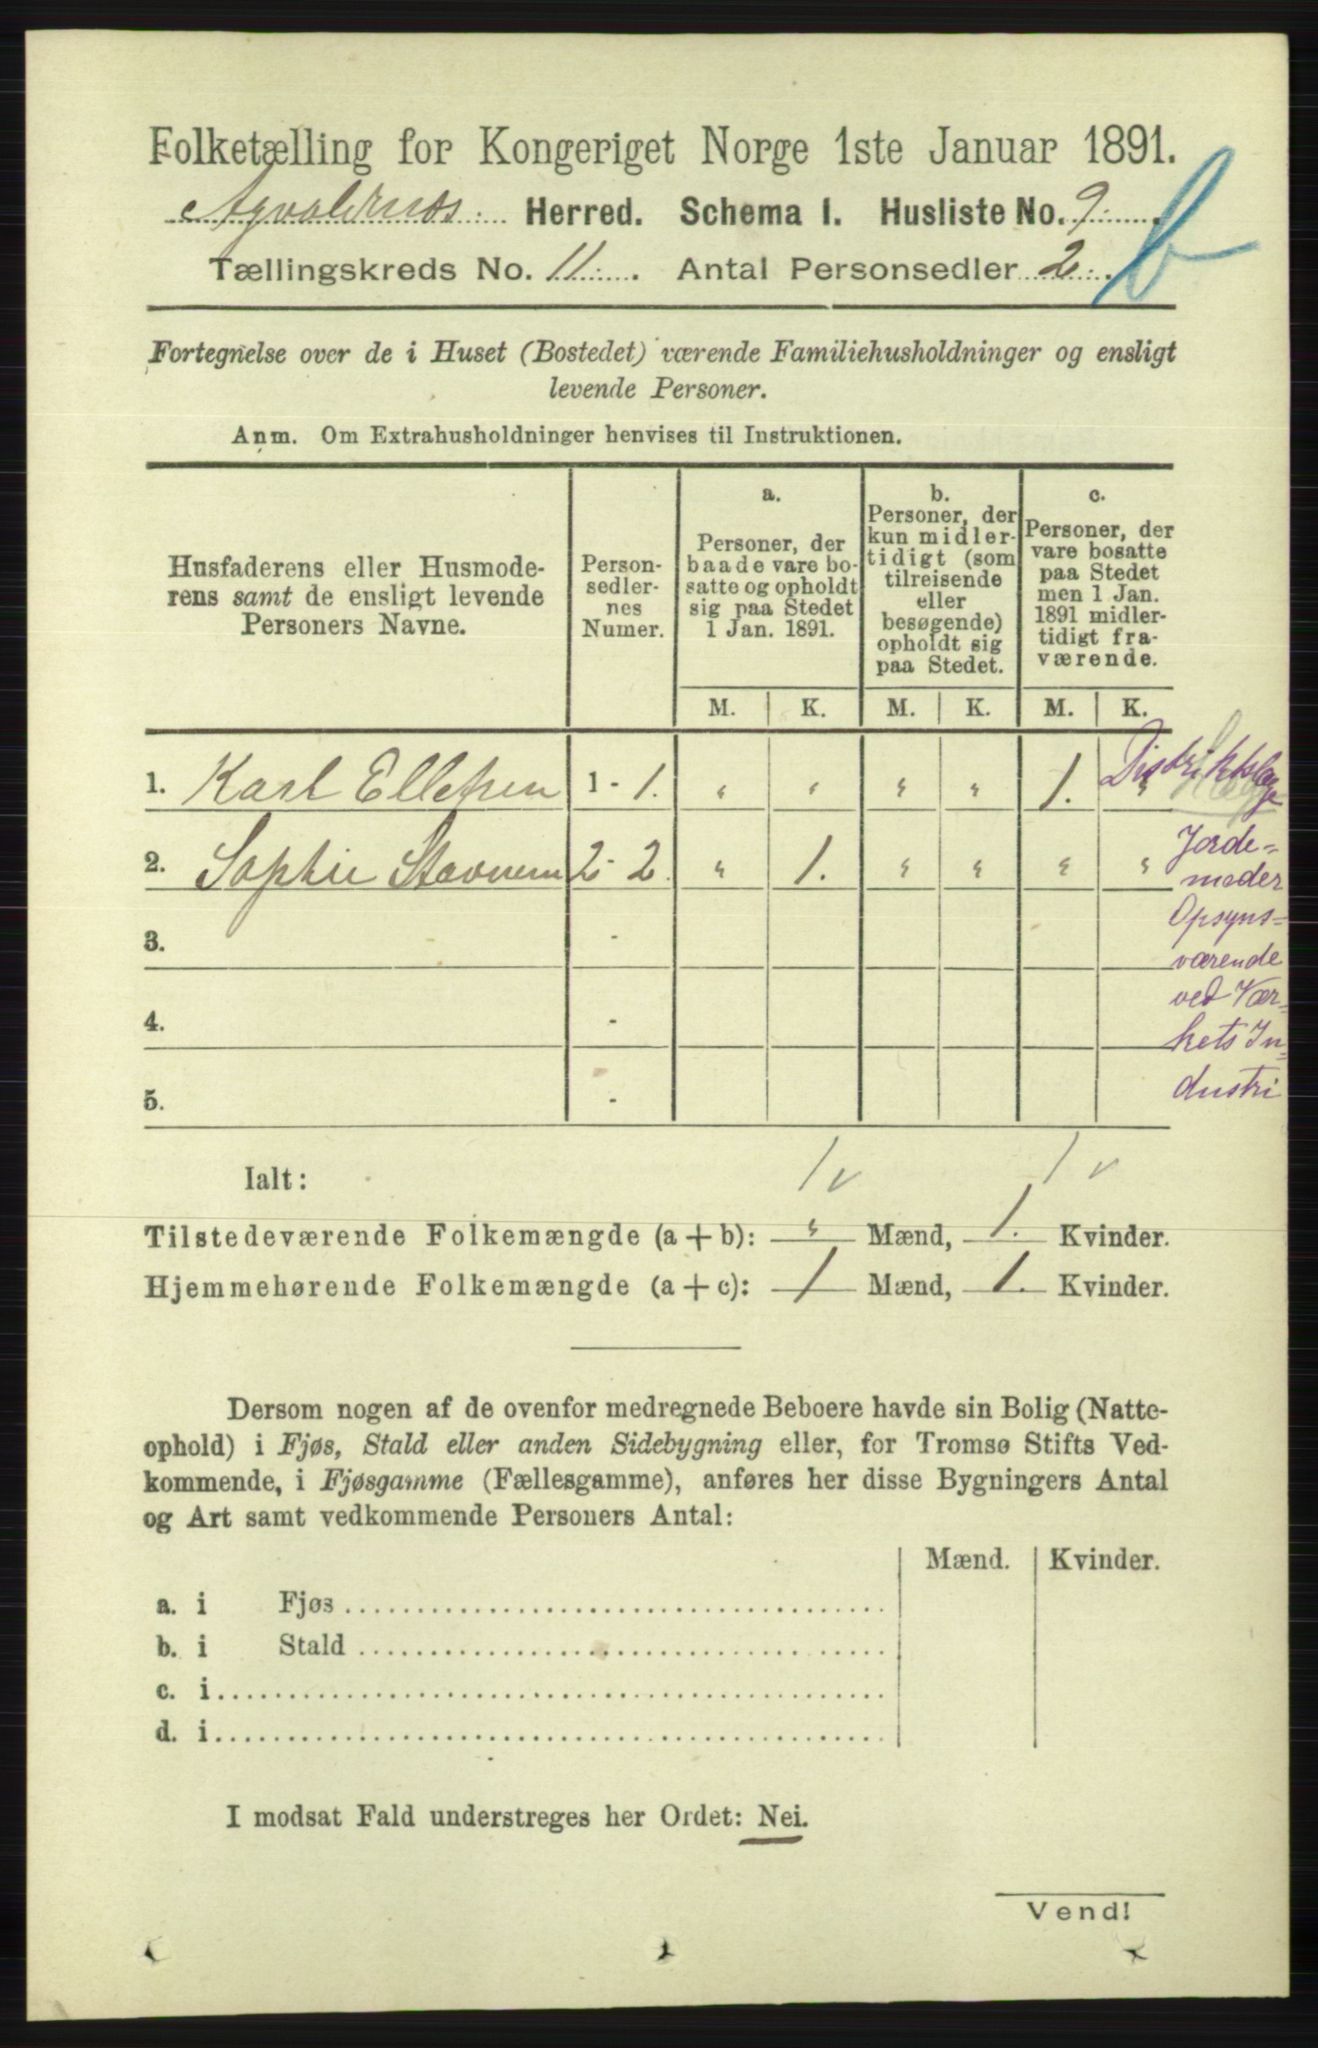 Folketælling for Kongeriget Norge 1ste Januar 1891.
Herred. Schema 1. Husliste No. 9.
Tællingskreds No. 11. Antal Personsedler 2. b
Fortegnelse over de i Huset (Bostedet) værende Familiehusholdninger og ensligt
levende Personer.
Anm. Om Extrahusholdninger henvises til Instruktionen.
Husfaderens eller Husmode-
rens samt de ensligt levende
Personers Navne.
Person-
sedler-
nes
Numer.
a.
Personer, der
baade vare bo-
satte og opholdt
sig paa Stedet
1 Jan. 1891.
b.
Personer, der
kun midler-
tidigt (som
tilreisende
eller
besøgende)
opholdt sig
paa Stedet.
c.
Personer, der
vare bosatte
paa Stedet
men 1 Jan.
1891 midler-
tidigt fra-
værende.
M. K. M. K. M. K.
1. Karl Ellefsen 1 - 1. " " " " 1. " Distriktslæge
2. Sophie Stavnem 2 - 2. " 1. " " " " Jorde-
moder
3. - Opsyns-
værende
4. - ved Vær-
kets In-
5. - dustri
1 v 1 v
Ialt:
Tilstedeværende Folkemængde (a + b): " Mænd, 1. Kvinder.
Hjemmehørende Folkemængde (a + c): 1 Mænd, 1. Kvinder.
Dersom nogen af de ovenfor medregnede Beboere havde sin Bolig (Natte-
ophold) i Fjøs, Stald eller anden Sidebygning eller, for Tromsø Stifts Ved-
kommende, i Fjøsgamme (Fællesgamme), anføres her disse Bygningers Antal
og Art samt vedkommende Personers Antal:
Mænd. Kvinder.
a. i Fjøs
b. i Stald
c. i
d. i
I modsat Fald understreges her Ordet: Nei.
Vend!